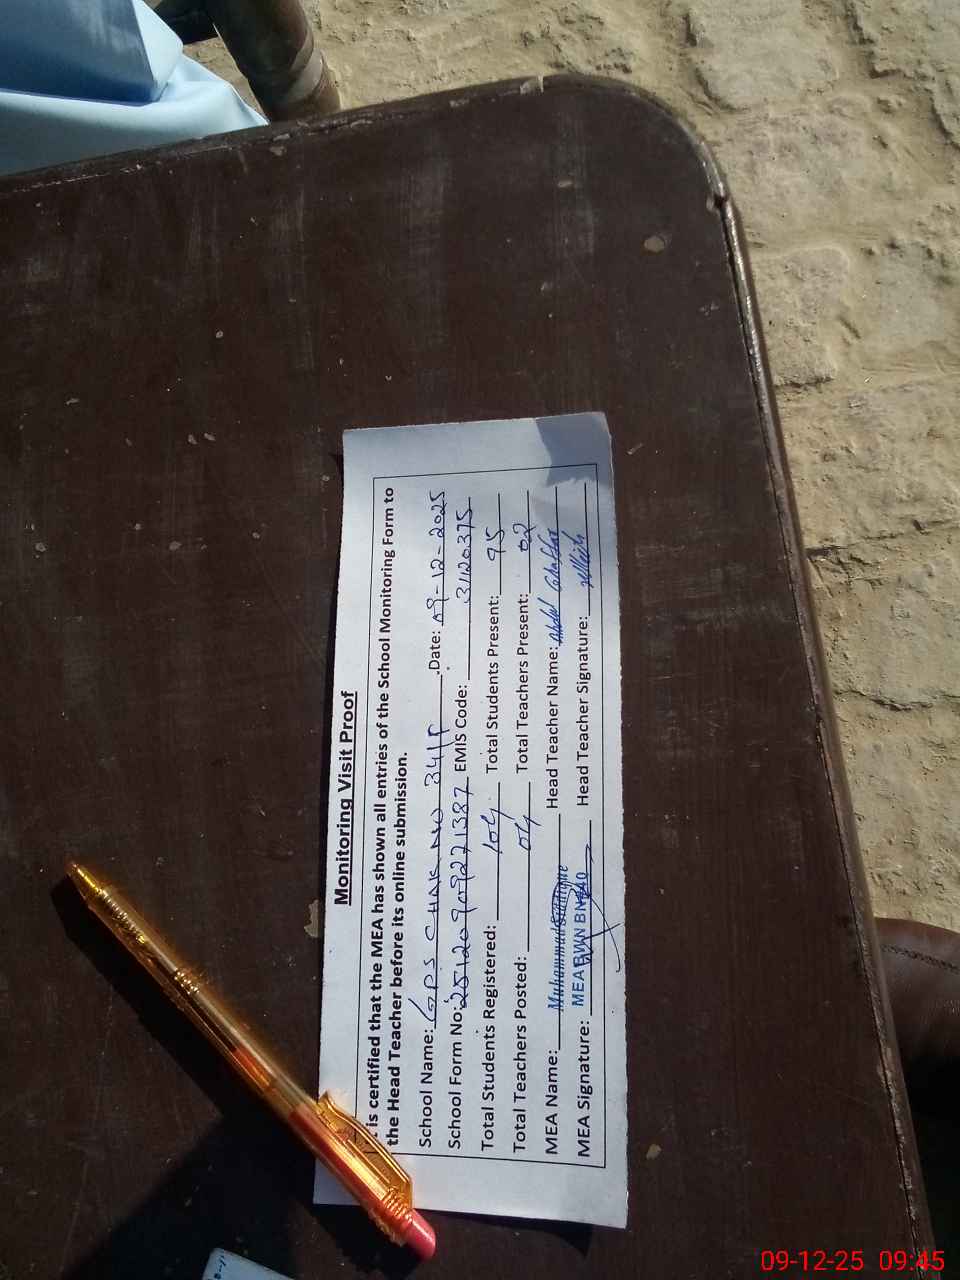 Monitoring Visit Proof
is certified that the MEA has shown all entries of the School Monitoring Form to
the Head Teacher before its online submission.
School Name: GPS CHAK NO 341P Date: 09-12-2025
School Form No: 251209092271387 EMIS Code: 31120375
Total Students Registered: 104 Total Students Present: 95
Total Teachers Posted: 04 Total Teachers Present: 02
MEA Name: Muhammad Siddique Head Teacher Name: Abdul Ghaffar
MEA Signature: MEA BWN BN Head Teacher Signature:
09-12-25 09:45